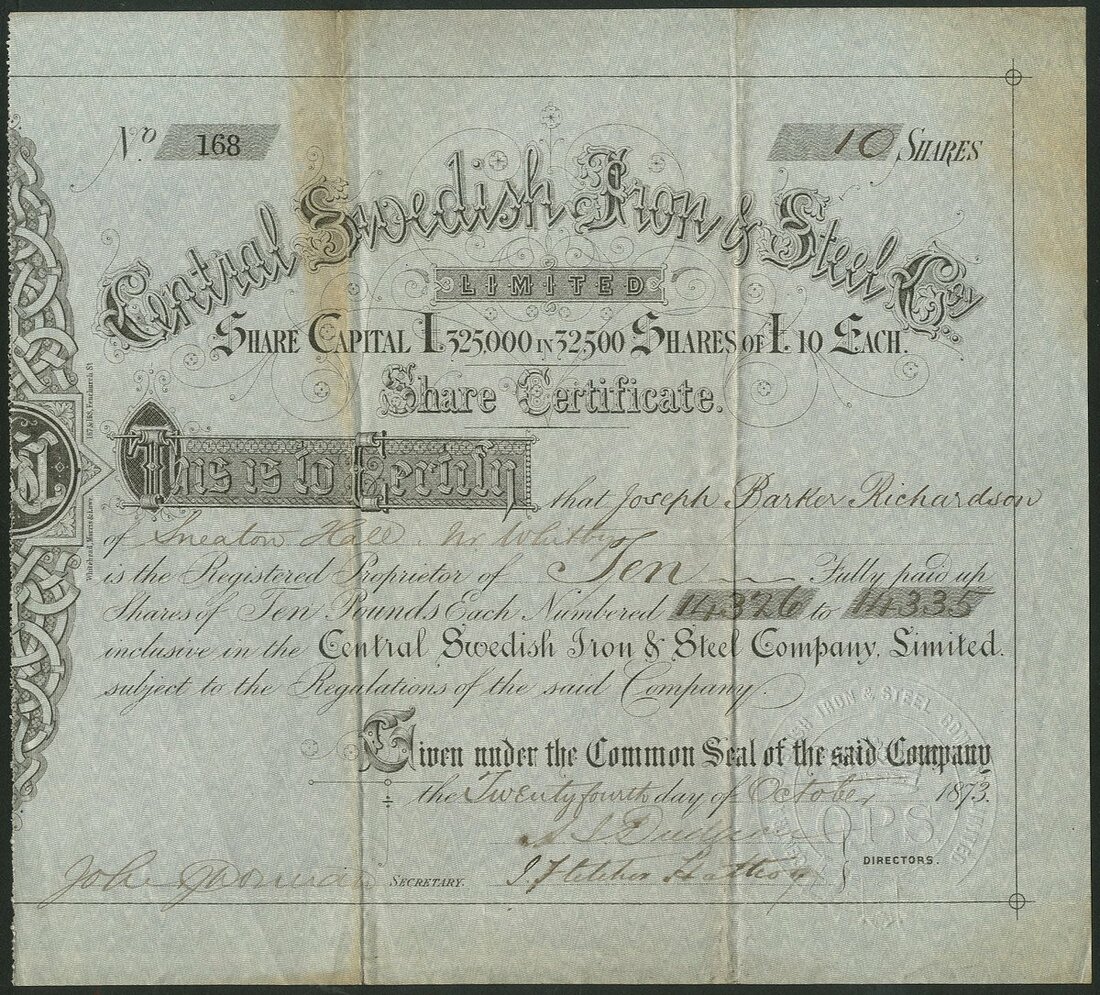 No 168
10 SHARES
Central Swedish Iron & Steel Coy
LIMITED
SHARE CAPITAL £325,000 IN 32,500 SHARES OF £10 EACH.
Share Certificate.
This is to Certify
that Joseph Barker Richardson
of Sneaton Hall Nr Whitby
is the Registered Proprietor of Ten Fully paid up
Shares of Ten Pounds Each Numbered 14326 to 14335
inclusive in the Central Swedish Iron & Steel Company, Limited.
subject to the Regulations of the said Company.
Given under the Common Seal of the said Company
the Twenty fourth day of October 1873.
DIRECTORS.
John SECRETARY. J. Fletcher
Whitehead, Morris & Lowe, 167 & 168, Fenchurch St
IRON & STEEL COMPANY LIMITED